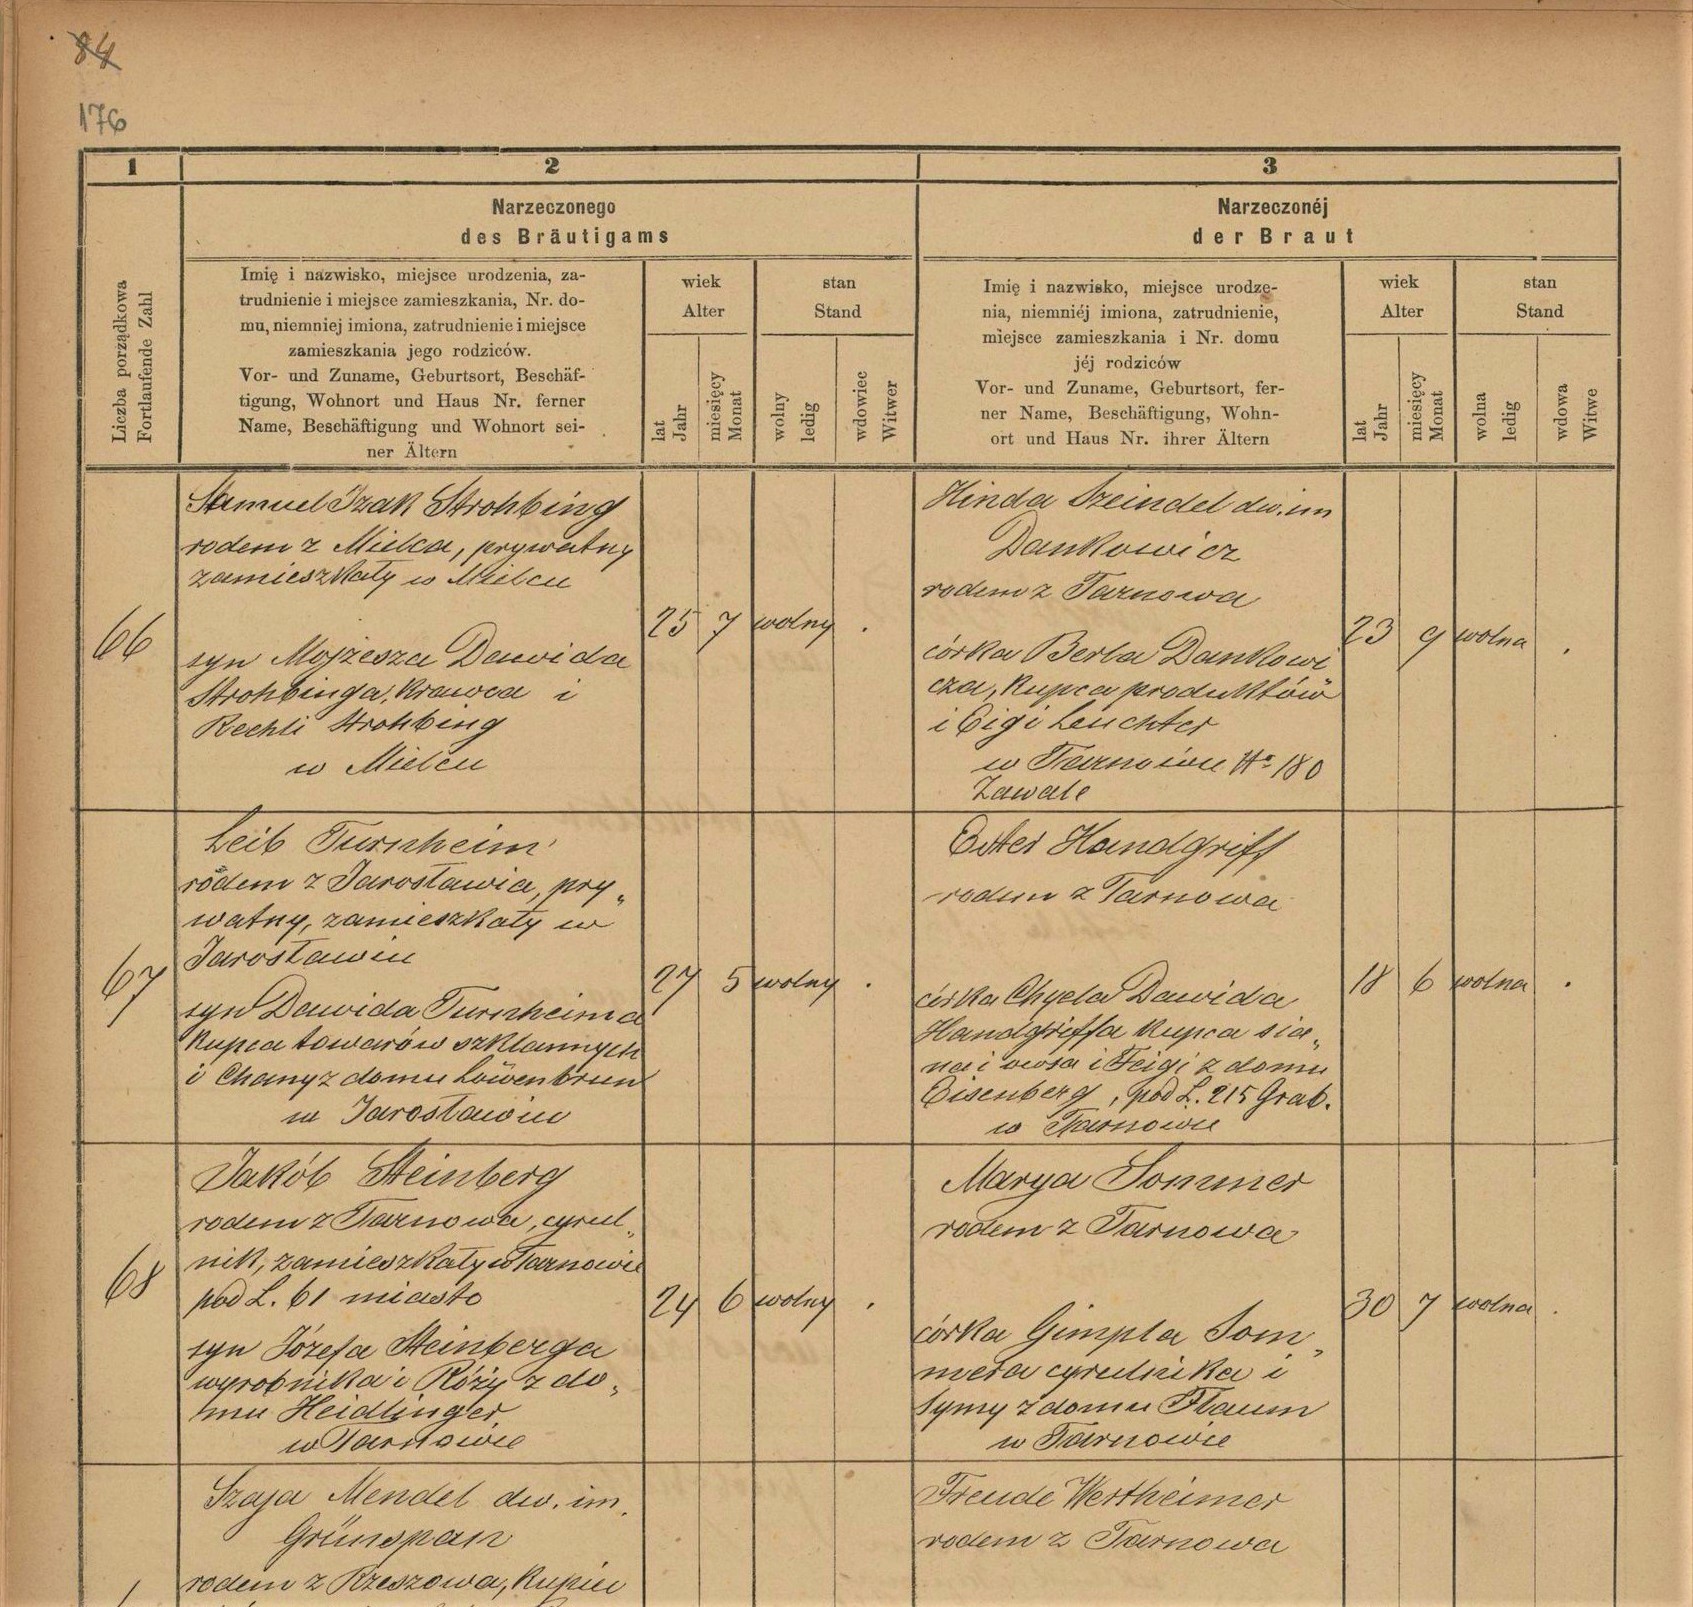 84
176
1
2
3
Liczba porządkowa
Fortlaufende Zahl
Narzeczonego
des Bräutigams
Imię i nazwisko, miejsce urodzenia, za-
trudnienie i miejsce zamieszkania, Nr. do-
mu, niemniej imiona, zatrudnienie i miejsce
zamieszkania jego rodziców.
Vor- und Zuname, Geburtsort, Beschäf-
tigung, Wohnort und Haus Nr. ferner
Name, Beschäftigung und Wohnort sei-
ner Ältern
wiek
Alter
lat
Jahr
miesięcy
Monat
stan
Stand
wolny
ledig
wdowiec
Witwer
Narzeczonéj
der Braut
Imię i nazwisko, miejsce urodze-
nia, niemniéj imiona, zatrudnienie,
miejsce zamieszkania i Nr. domu
jéj rodziców
Vor- und Zuname, Geburtsort, fer-
ner Name, Beschäftigung, Wohn-
ort und Haus Nr. ihrer Ältern
wiek
Alter
lat
Jahr
miesięcy
Monat
stan
Stand
wolna
ledig
wdowa
Witwe
66
Samuel Izak Strohbing
rodem z Mielca, prywatny
zamieszkały w Mielcu
syn Mojżesza Dawida
Strohbinga, krawca i
Rechli Strohbing
w Mielcu
25 7 wolny .
Hinda Szeindel dw. im
Dankowicz
rodem z Tarnowa
córka Berla Dankowi
cza, kupca produktów
i Eigi Leuchter
w Tarnowie No 180
Zawale
23 9 wolna .
67
Leib Turnheim
rodem z Jarosławia, pry„
watny, zamieszkały w
Jarosławiu
syn Dawida Turnheima
kupca towarów szklannych
i Chany z domu Löwenbrun
w Jarosławiu
27 5 wolny .
Ester Handgriff
rodem z Tarnowa
córka Chyela Dawida
Handgriffa kupca sia„
na i owsa i Feigi z domu
Eisenberg, pod L. 215 Grab.
w Tarnowie
18 6 wolna .
68
Jakób Steinberg
rodem z Tarnowa, cyrul„
nik, zamieszkały w Tarnowie
pod L. 61 miasto
syn Józefa Steinberga
wyrobnika i Róży z do„
mu Heidlinger
w Tarnowie
24 6 wolny .
Marya Sommer
rodem z Tarnowa
córka Gimpla Som„
mera cyrulnika i
Symy z domu Flaum
w Tarnowie
30 7 wolna .
Szaja Mendel dw. im.
Grünspan
rodem z Rzeszowa, kupiec
Freude Wertheimer
rodem z Tarnowa